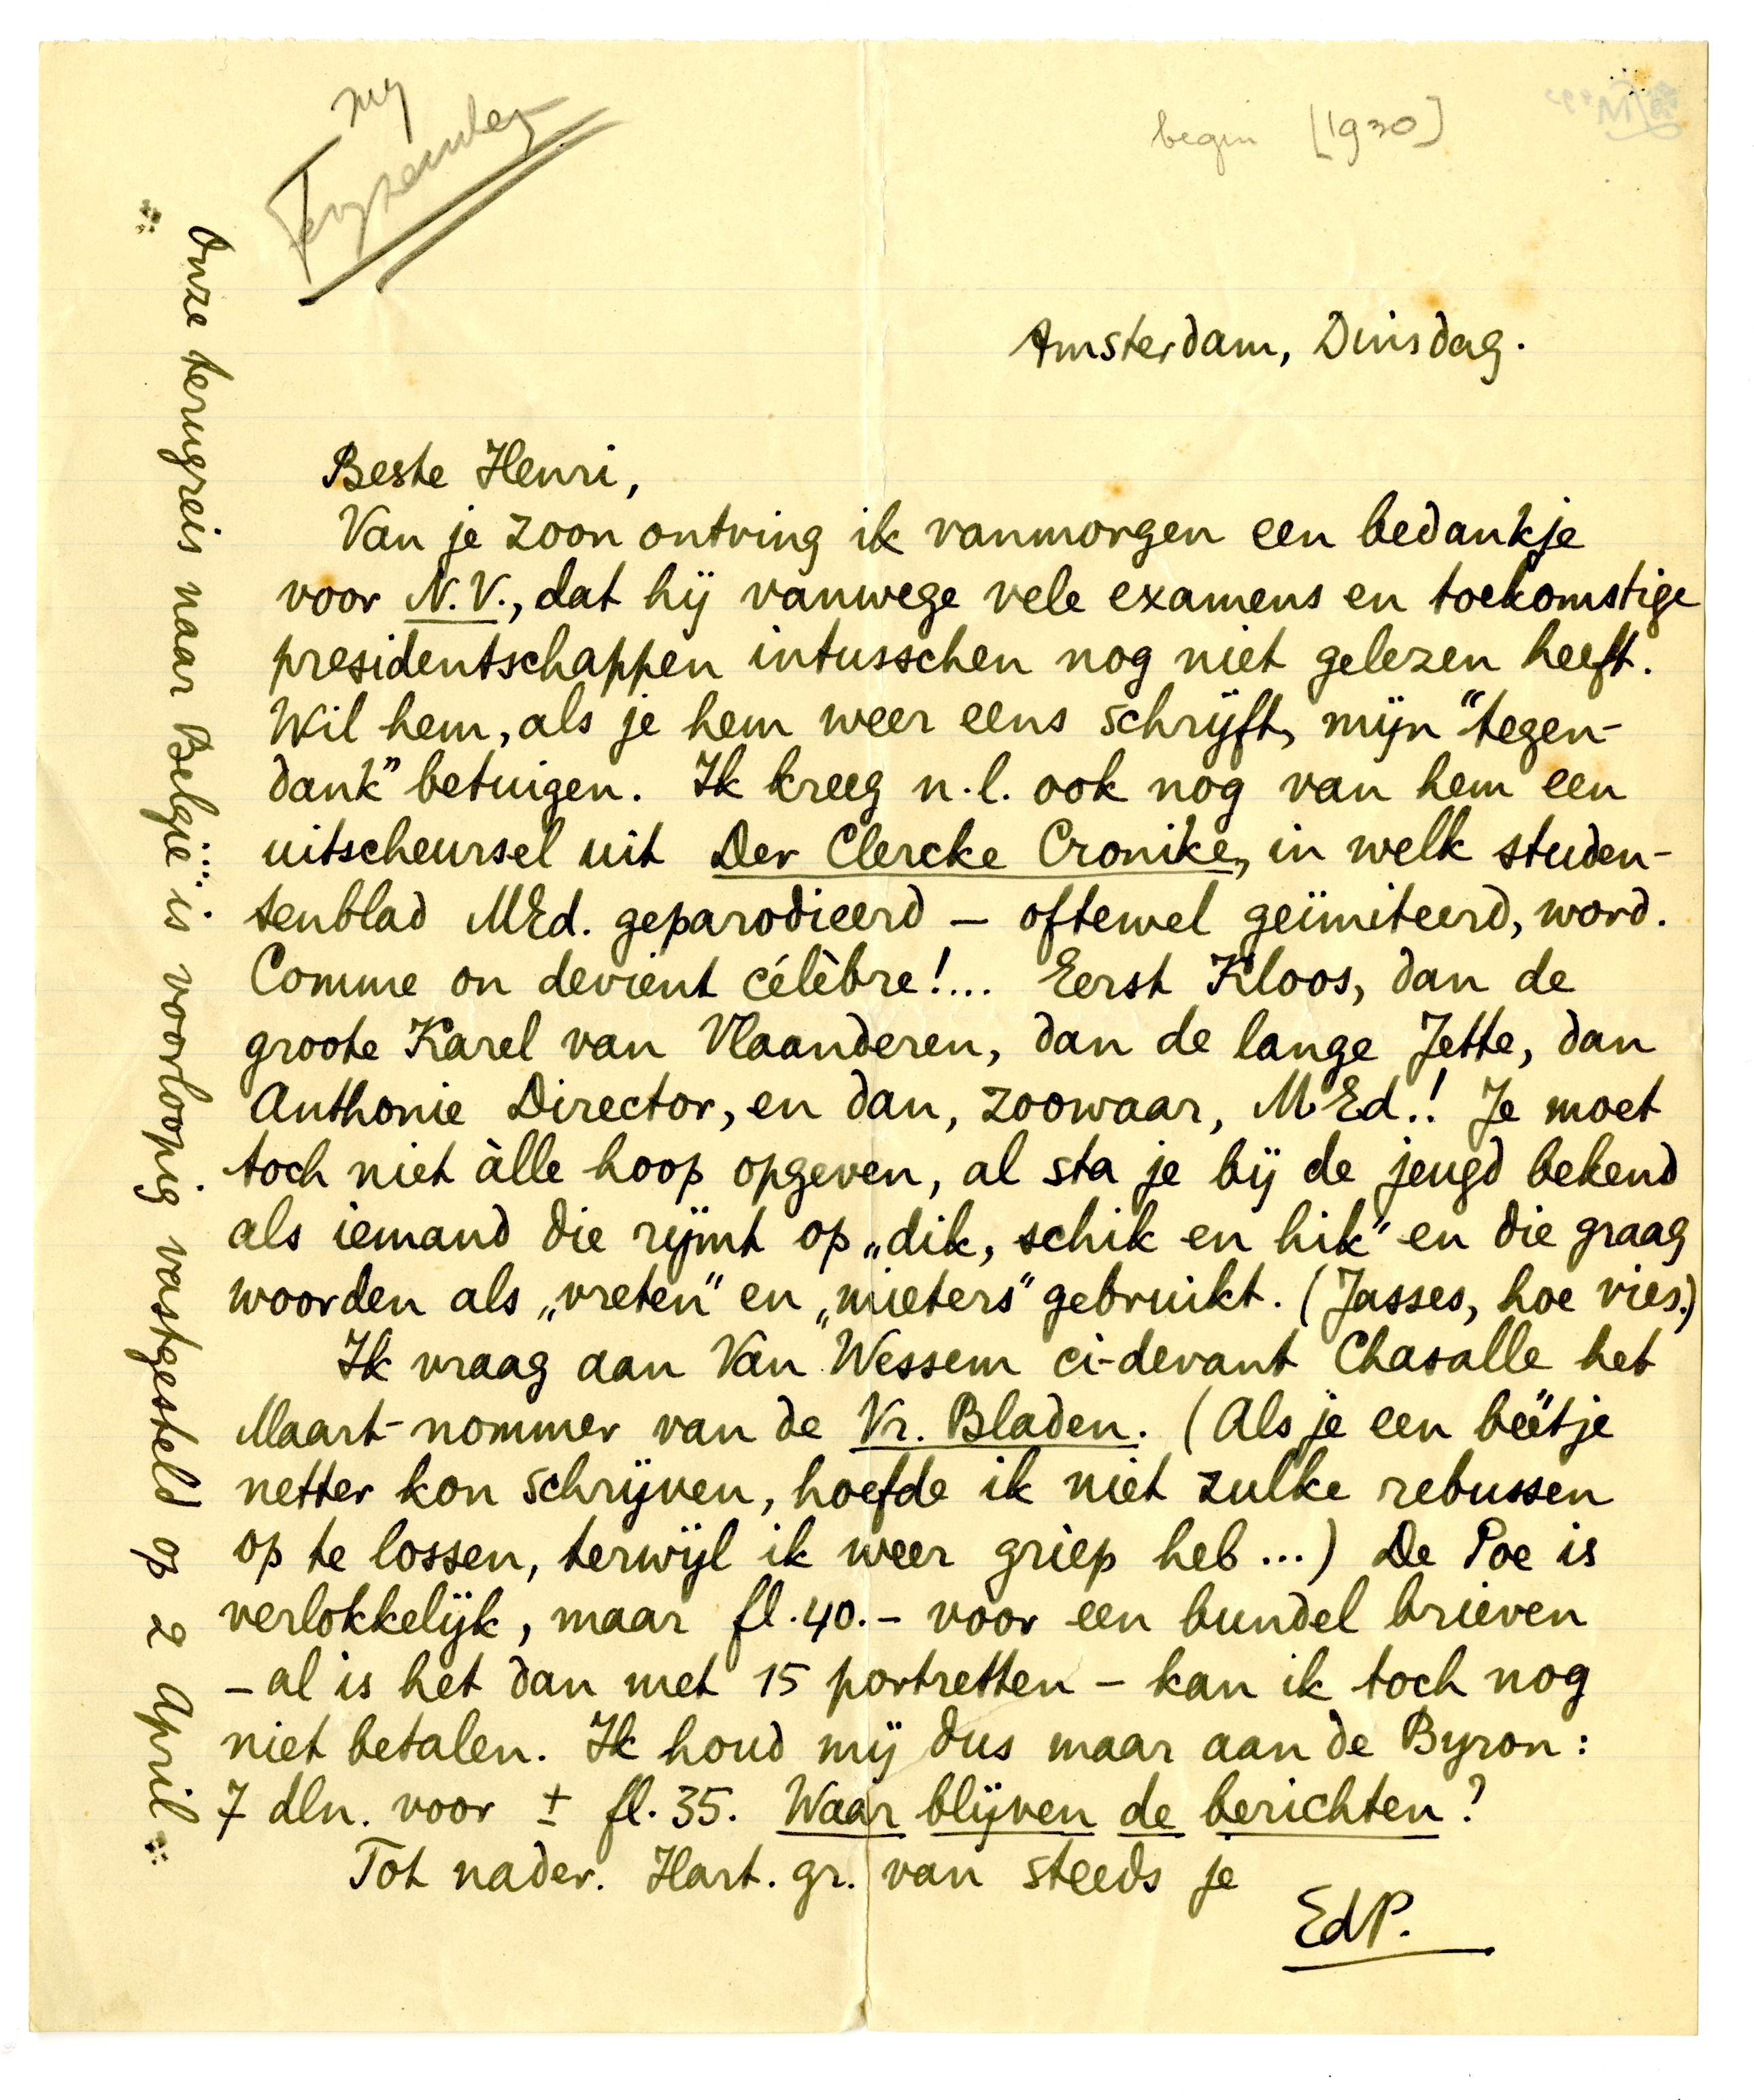 begin [1930]
Amsterdam, Dinsdag.
Beste Henri,
Van je zoon ontving ik vanmorgen een bedankje
voor N.V., dat hij vanwege vele examens en toekomstige
presidentschappen intusschen nog niet gelezen heeft.
Wil hem, als je hem weer eens schrijft, mijn "tegen-
dank" betuigen. Ik kreeg n.l. ook nog van hem een
uitscheursel uit Der Clercke Cronike, in welk studen-
tenblad MEd. geparodieerd – oftewel geïmiteerd, word.
Comme on devient célèbre!... Eerst Kloos, dan de
groote Karel van Vlaanderen, dan de lange Jette, dan
Anthonie Director, en dan, zoowaar, MEd.! Je moet
toch niet àlle hoop opgeven, al sta je bij de jeugd bekend
als iemand die rijmt op „dik, schik en hik" en die graag
woorden als „vreten" en „mieters" gebruikt. (Jasses, hoe vies.)
Ik vraag aan Van Wessem ci-devant Chasalle het
Maart-nommer van de Vr. Bladen. (Als je een beetje
netter kon schrijven, hoefde ik niet zulke rebussen
op te lossen, terwijl ik weer griep heb...) De Poe is
verlokkelijk, maar fl. 40.– voor een bundel brieven
– al is het dan met 15 portretten – kan ik toch nog
niet betalen. Ik houd mij dus maar aan de Byron:
7 dln. voor ± fl. 35. Waar blijven de berichten?
Tot nader. Hart. gr. van steeds je
EdP.
Onze terugreis naar België is voorloopig vastgesteld op 2 April